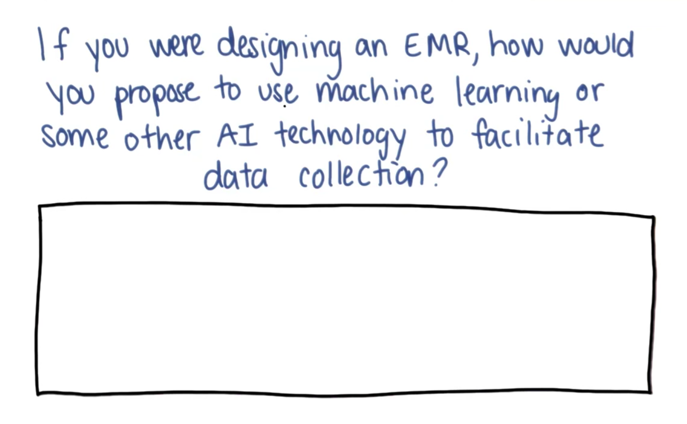 If you were designing an EMR, how would
you propose to use machine learning or
some other AI technology to facilitate
data collection?